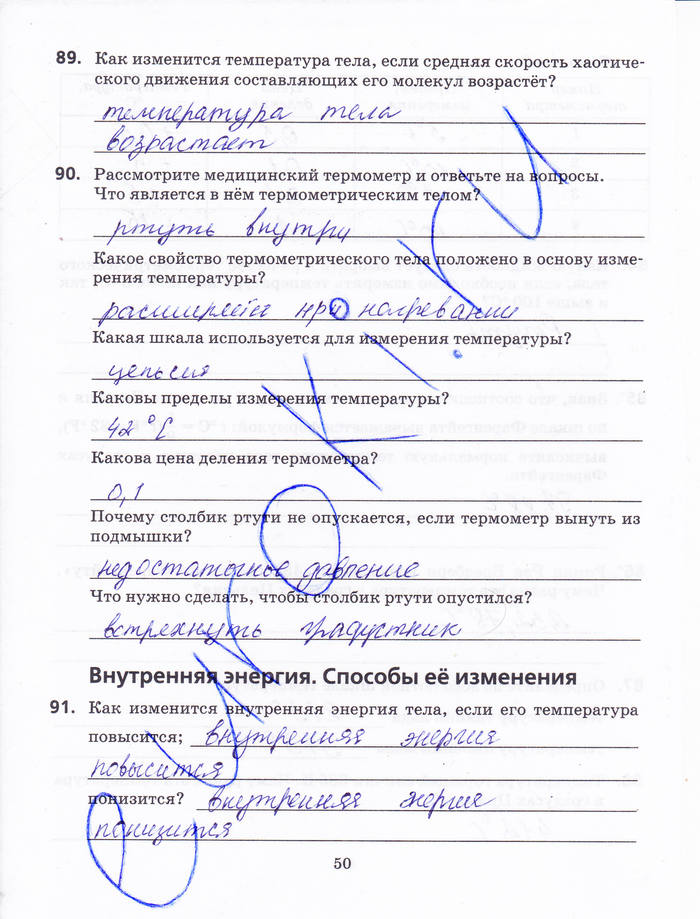 89. Как изменится температура тела, если средняя скорость хаотиче-
ского движения составляющих его молекул возрастёт?
температура тела
возрастает
90. Рассмотрите медицинский термометр и ответьте на вопросы.
Что является в нём термометрическим телом?
ртуть внутри
Какое свойство термометрического тела положено в основу изме-
рения температуры?
при нагревании
Какая шкала используется для измерения температуры?
цельсия
Каковы пределы измерения температуры?
42 °C
Какова цена деления термометра?
0,1
Почему столбик ртути не опускается, если термометр вынуть из
подмышки?
недостаточное давление
Что нужно сделать, чтобы столбик ртути опустился?
встряхнуть градустник
Внутренняя энергия. Способы её изменения
91. Как изменится внутренняя энергия тела, если его температура
повысится; внутренняя энергия
повысится
понизится? внутренняя энергия
понизится
50